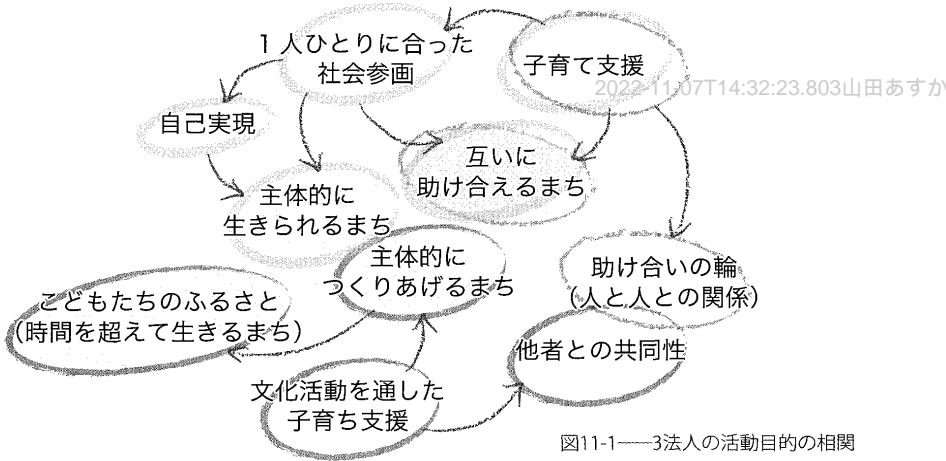 1人ひとりに合った
社会参画
子育て支援
2022-11-07T14:32:23.803山田あすか
自己実現
互いに
助け合えるまち
主体的に
生きられるまち
主体的に
つくりあげるまち
助け合いの輪
（人と人との関係）
こどもたちのふるさと
（時間を超えて生きるまち）
他者との共同性
文化活動を通した
子育ち支援
図11-1──3法人の活動目的の相関